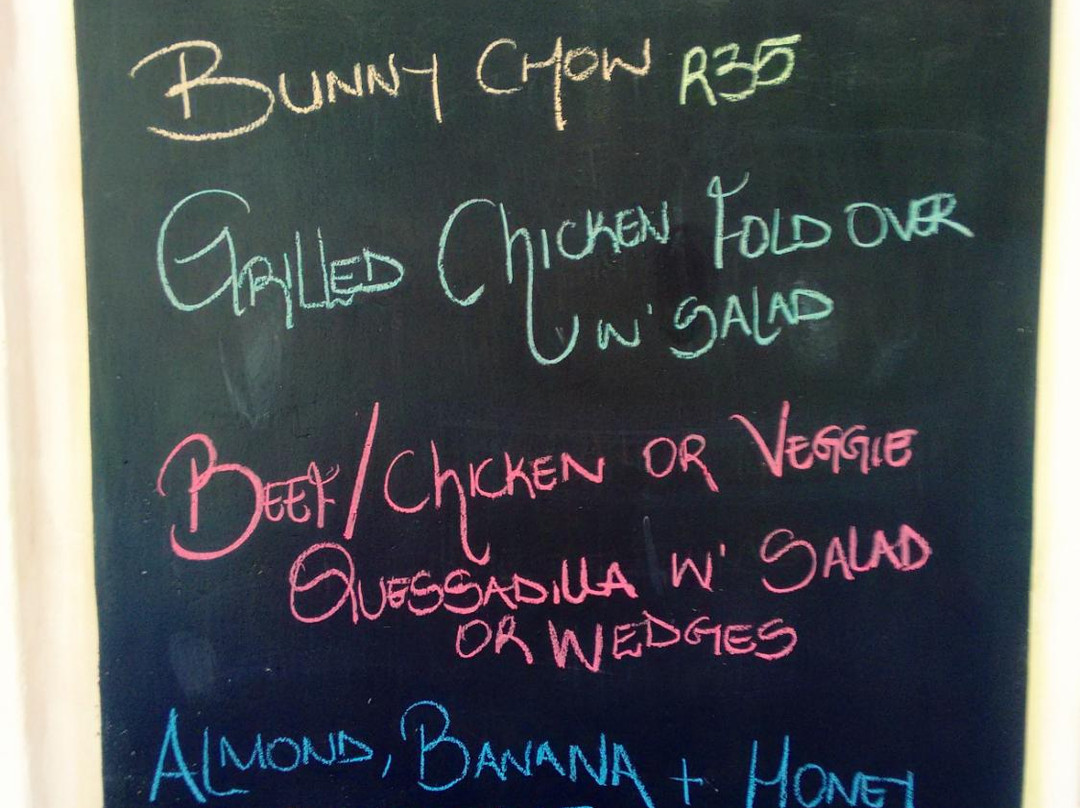 Bunny Chow R35
Grilled Chicken Fold Over
w' Salad
Beef/Chicken or Veggie
Quessadilla w' Salad
or Wedges
Almond, Banana + Honey